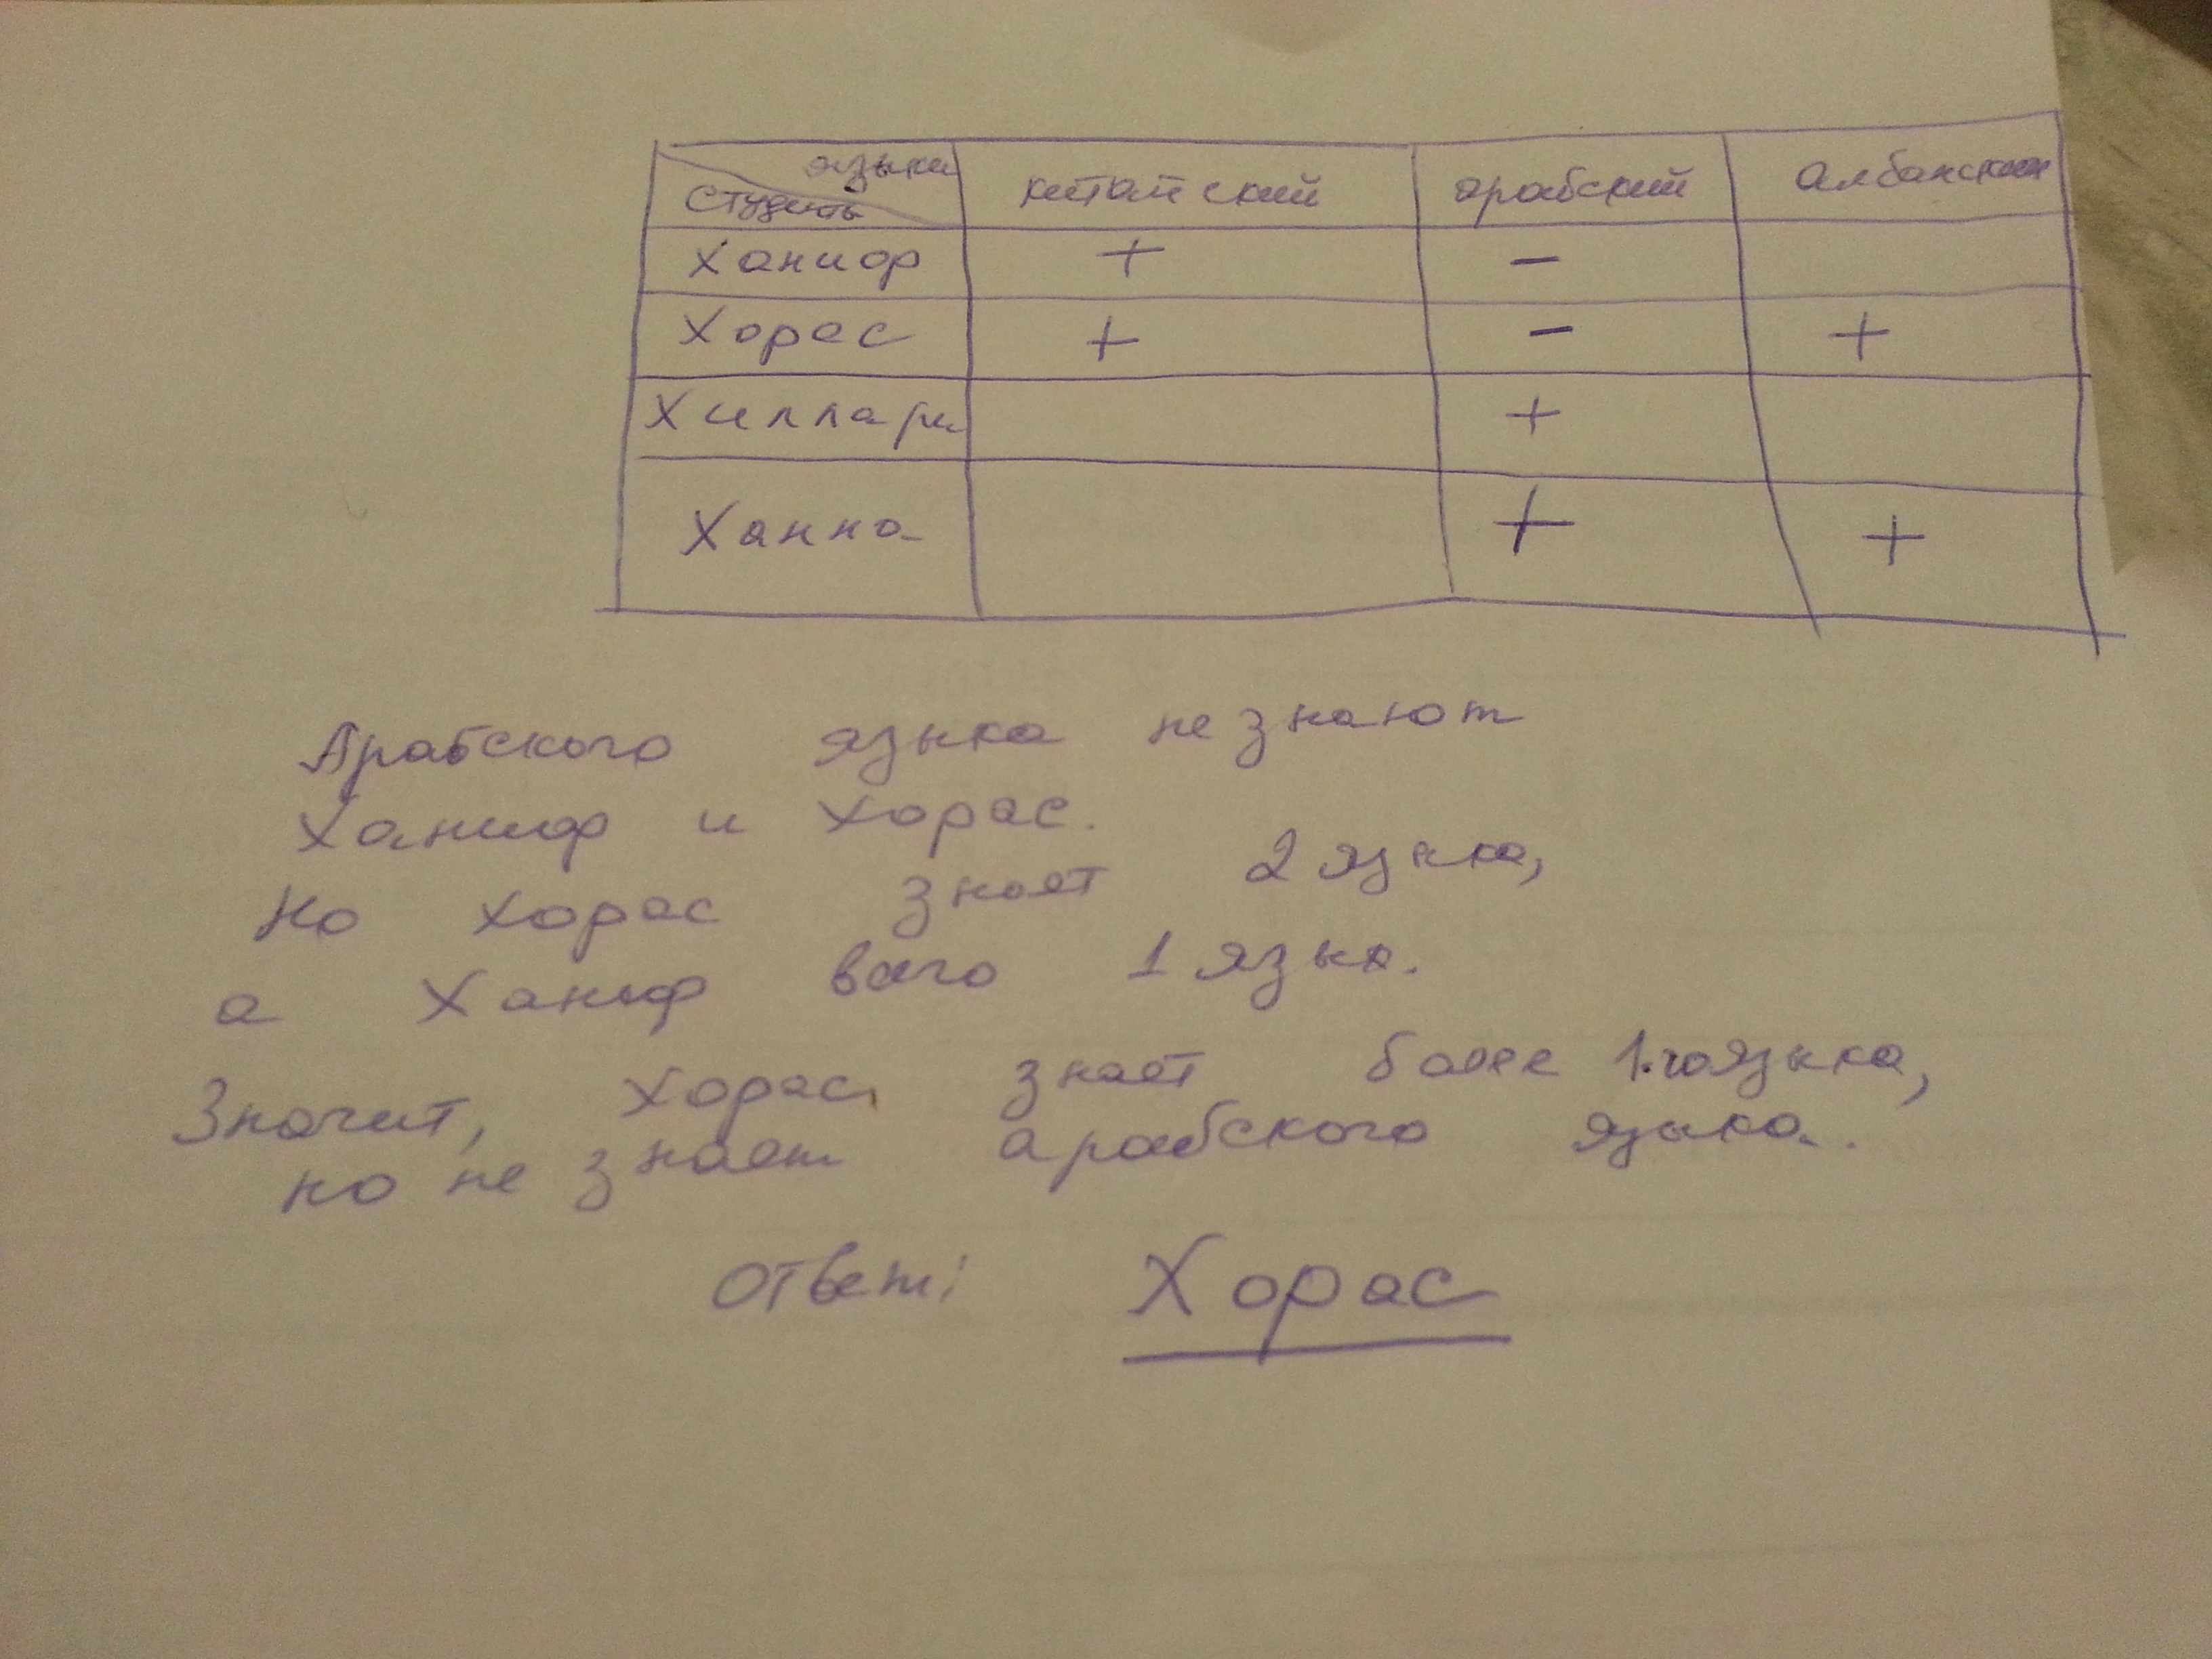 языки
студенты
китайский арабский албанский
Ханиф + -
Хорас + - +
Хиллари +
Ханна + +
Арабского языка не знают
Ханиф и Хорас.
Но Хорас знает 2 языка,
а Ханиф всего 1 язык.
Значит, Хорас знает более 1-го языка,
но не знает арабского языка.
Ответ: Хорас